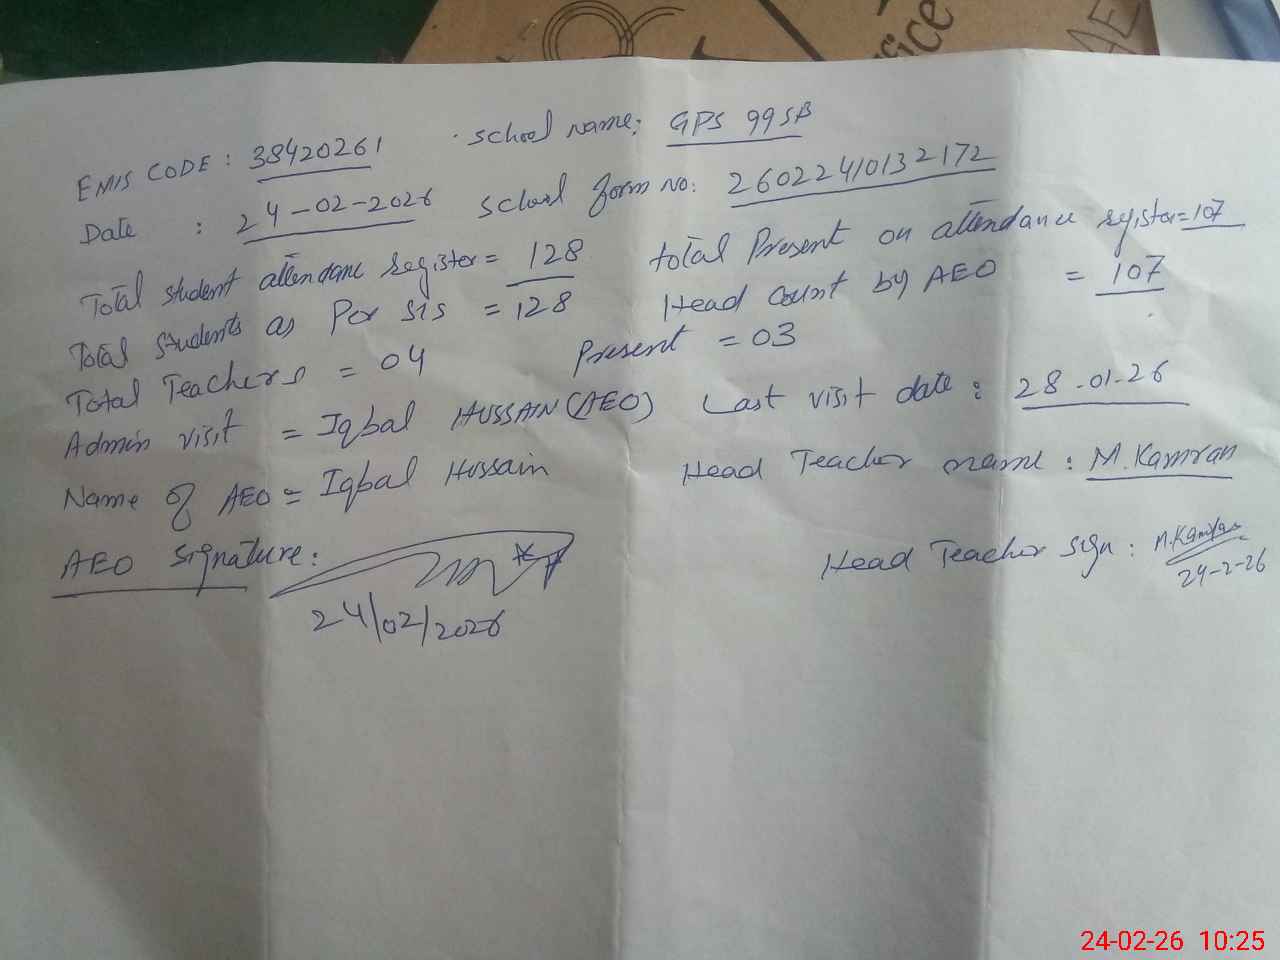 ffice
AE
EMIS CODE : 38420261 School name: GPS 99SB
Date : 24-02-2026 School form no: 26022410132172
Total student attendanc register = 128 total Present on attendance register = 107
Total Students as Per SIS = 128 Head Count by AEO = 107
Total Teachers = 04 Present = 03
Admin visit = Iqbal HUSSAIN (AEO) Last visit date : 28-01-26
Name of AEO = Iqbal Hussain Head Teacher name : M. Kamran
AEO Signature : Head Teacher sign : M. Kamran
24/02/2026 24-2-26
24-02-26 10:25